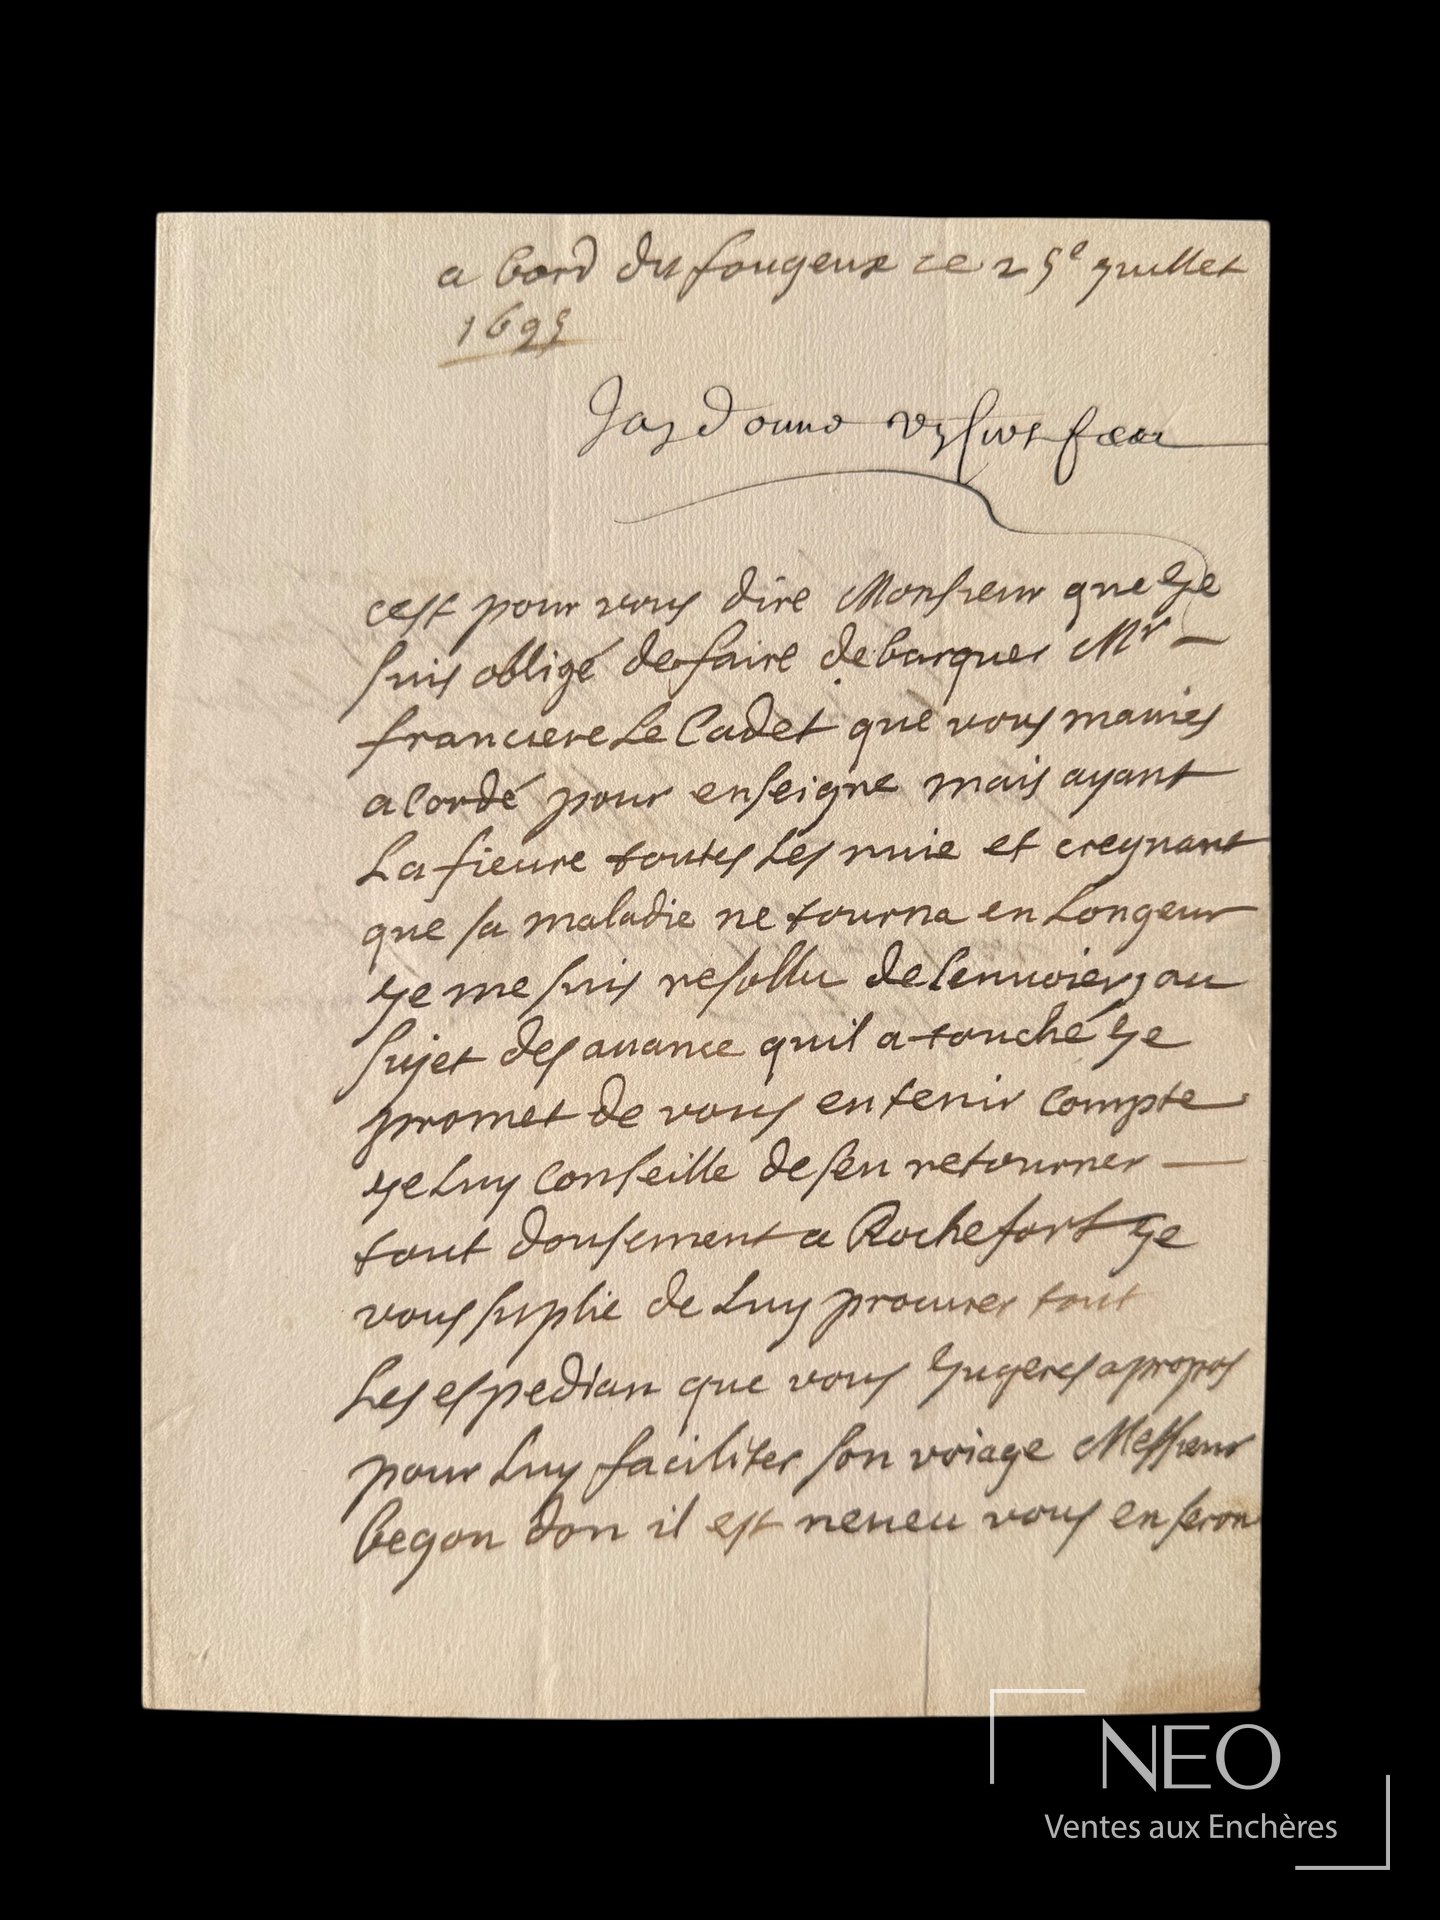 a bord du fougeux ce 25e juillet
1695
Jay donné
cest pour vous dire Monsieur que Je
suis obligé de faire debarquer Mr
franciere Le Cadet que vous mauies
acordé pour enseigne mais ayant
La fieure toutes Les nuie et creignant
que sa maladie ne tourna en Longeur
Je me suis resollu de lenuoier, au
sujet des auance quil a touché Je
promet de vous en tenir compte
Je Luy conseille de sen retourner
tout dousement a Rochefort Je
vous suplie de Luy procurer tout
Les espedian que vous Jugeres apropos
pour Luy faciliter son voiage Messieur
begon don il est neueu vous en seron
NEO
Ventes aux Enchères